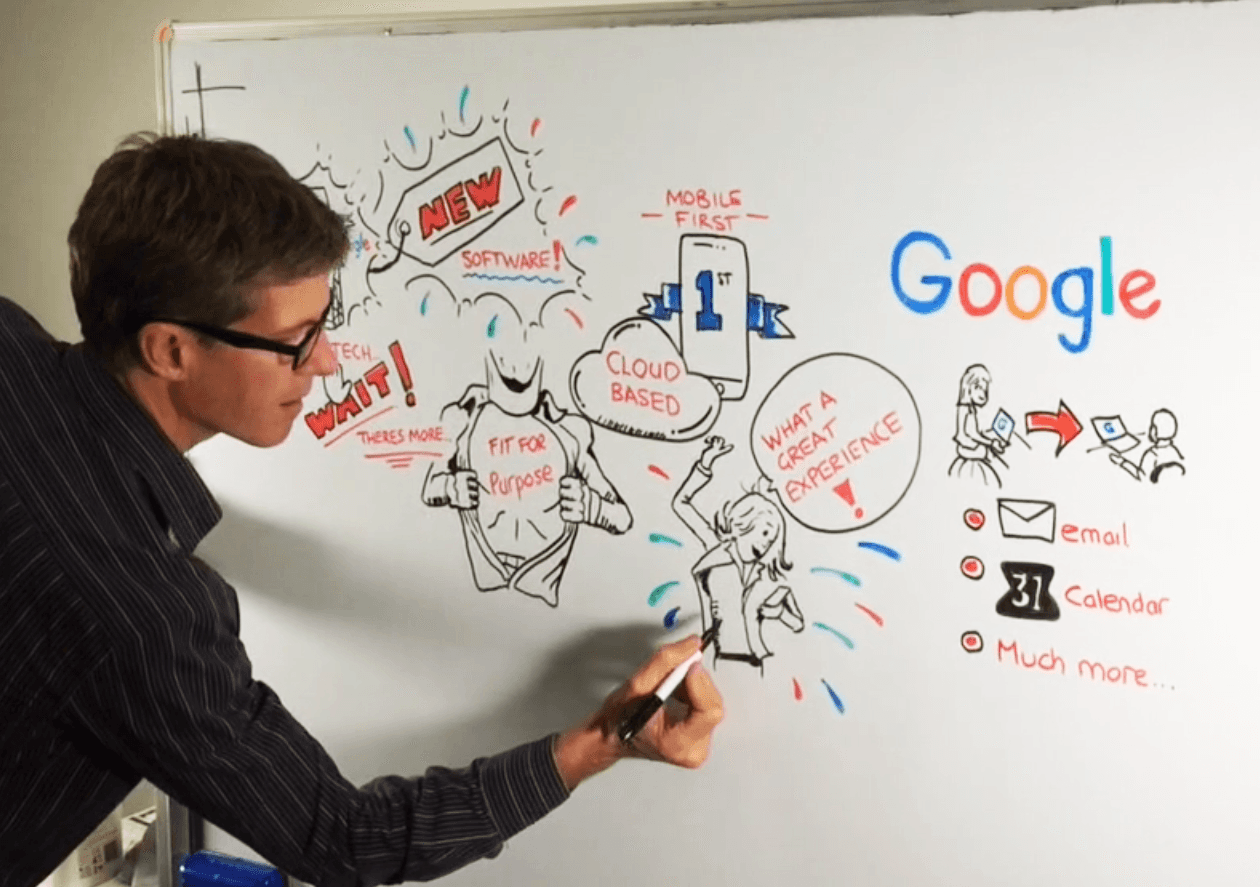 NEW
SOFTWARE!
TECH...
WAIT!
THERES MORE...
FIT FOR
Purpose
MOBILE
FIRST
1ST
CLOUD
BASED
WHAT A
GREAT
EXPERIENCE
!
Google
G
G
email
31
Calendar
Much more...